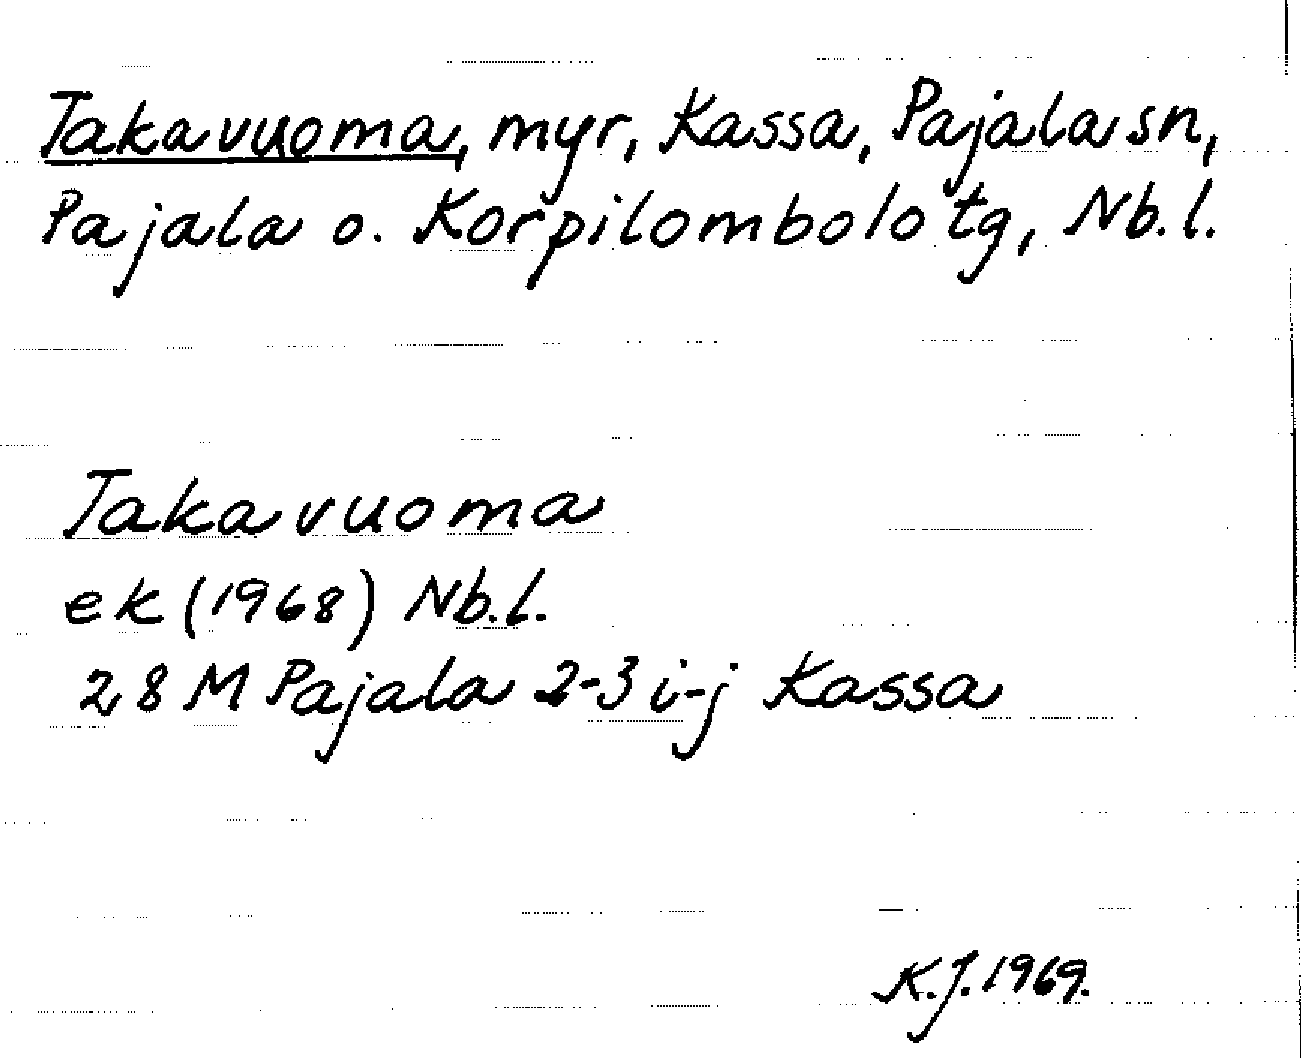 Takavuoma, myr, Kassa, Pajala sn,
Pajala o. Korpilombolo tg, Nb.l.
Takavuoma
ek (1968) Nb.l.
28 M Pajala 2-3 i-j Kassa
K.J. 1969.